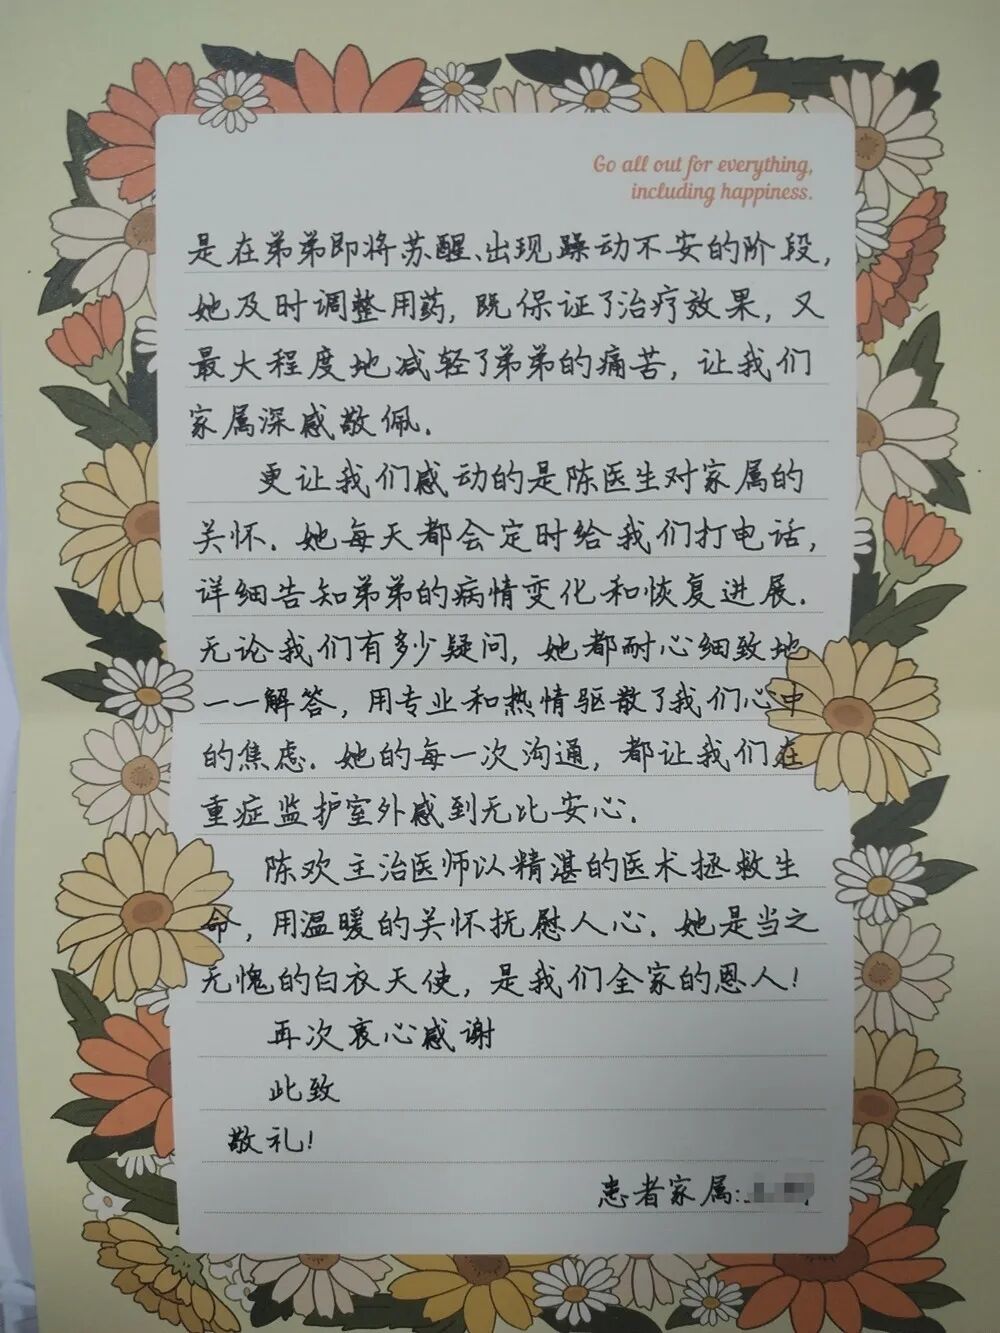 Go all out for everything,
including happiness.
是在弟弟即将苏醒、出现躁动不安的阶段,
她及时调整用药, 既保证了治疗效果, 又
最大程度地减轻了弟弟的痛苦, 让我们
家属深感敬佩.
更让我们感动的是陈医生对家属的
关怀. 她每天都会定时给我们打电话,
详细告知弟弟的病情变化和恢复进展.
无论我们有多少疑问, 她都耐心细致地
一一解答, 用专业和热情驱散了我们心中
的焦虑. 她的每一次沟通, 都让我们在
重症监护室外感到无比安心.
陈欢主治医师以精湛的医术拯救生
命, 用温暖的关怀抚慰人心. 她是当之
无愧的白衣天使, 是我们全家的恩人!
再次衷心感谢
此致
敬礼!
患者家属: